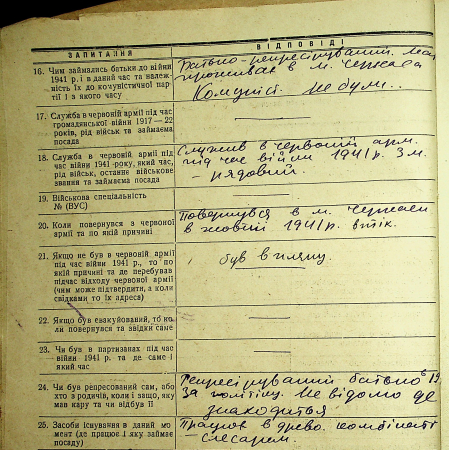 ЗАПИТАННЯ
ВІДПОВІДІ
16. Чим займались батьки до війни
1941 р. і в даний час та належ-
ність їх до комуністичної пар-
тії і з якого часу
Батько - репресірований. Мати
проживає в м. Черкаси
Комуніст. не були..
17. Служба в червоній армії під час
громадянської війни 1917—22
років, рід військ та займаєма
посада
18. Служба в червоній армії під
час війни 1941 року, який час,
рід військ, останнє військове
звання та займаєма посада
Служив в червоній арм.
під час війни 1941 р. 3 м.
- рядовий.
19. Військова спеціальність
№ (ВУС)
20. Коли повернувся з червоної
армії та по якій причині
Повернувся в м. Черкаси
в жовтні 1941 р. втік.
21. Якщо не був в червоній армії
під час війни 1941 р., то по
якій причині та де перебував
підчас відходу червоної армії
(чим може підтвердити, а коли
свідками то їх адреса)
був в
22. Якщо був евакуйований, то ко-
ли повернувся та звідки саме
23. Чи був в партизанах під час
війни 1941 р. та де саме і
який час
24. Чи був репресований сам, або
хто з родичів, коли і защо, яку
мав кару та чи відбув її
Репресірований батько в 19
За політику. Не відомо де
знаходиться
25. Засоби існування в даний мо-
мент (де працює і яку займає
посаду)
Працюв в древо. комбінаті
- слесарем.